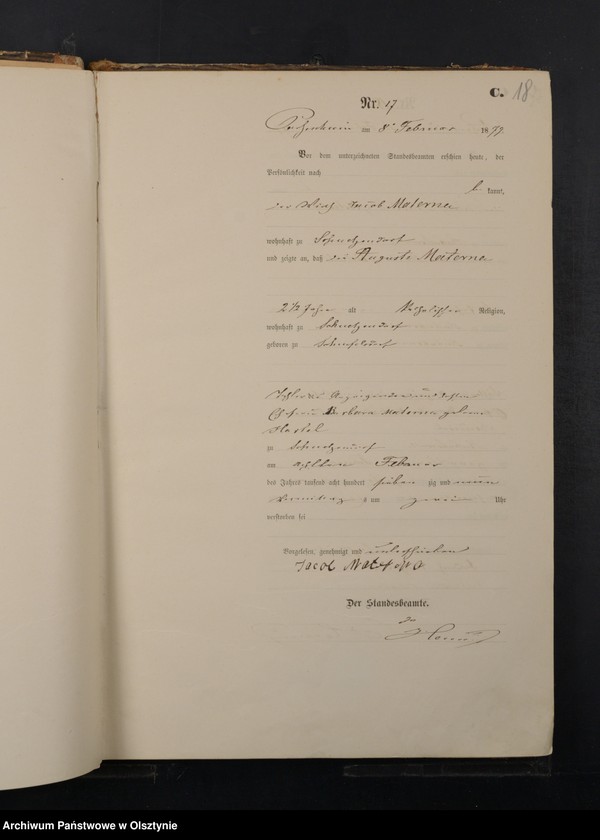 C. 18
Nr. 17
am 8ten Februar 1879.
Vor dem unterzeichneten Standesbeamten erschien heute, der
Persönlichkeit nach
kannt,
der Jacob Materna
wohnhaft zu
und zeigte an, daß die Auguste Materna
2 1/2 Jahre alt Katholischer Religion,
wohnhaft zu
geboren zu
Tochter des Anzeigenden und dessen
Ehefrau Barbara Materna geborne
zu
am achten Februar
des Jahres tausend acht hundert sieben zig und neun
Vormittags um zwei Uhr
verstorben sei
Vorgelesen, genehmigt und unterschrieben
Jacob Materna
Der Standesbeamte.
Archiwum Państwowe w Olsztynie